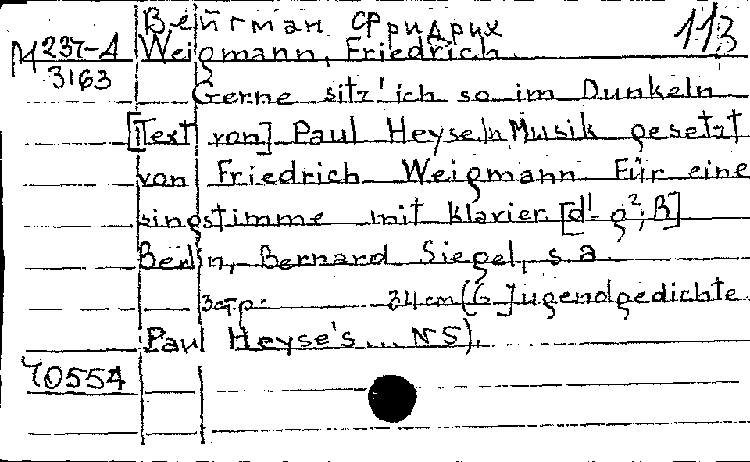 Вейгман Фридрих 113
М 237-А Weigmann, Friedrich.
3163
Gerne sitz' ich so im Dunkeln
[Text von] Paul Heyse In Musik gesetzt
von Friedrich Weigmann Für eine
singstimme mit klavier [d¹-g²; B]
Berlin, Bernard Siegel, s a
3стр. 34 cm (6 Jugendgedichte
Paul Heyse's... N 5).
70554